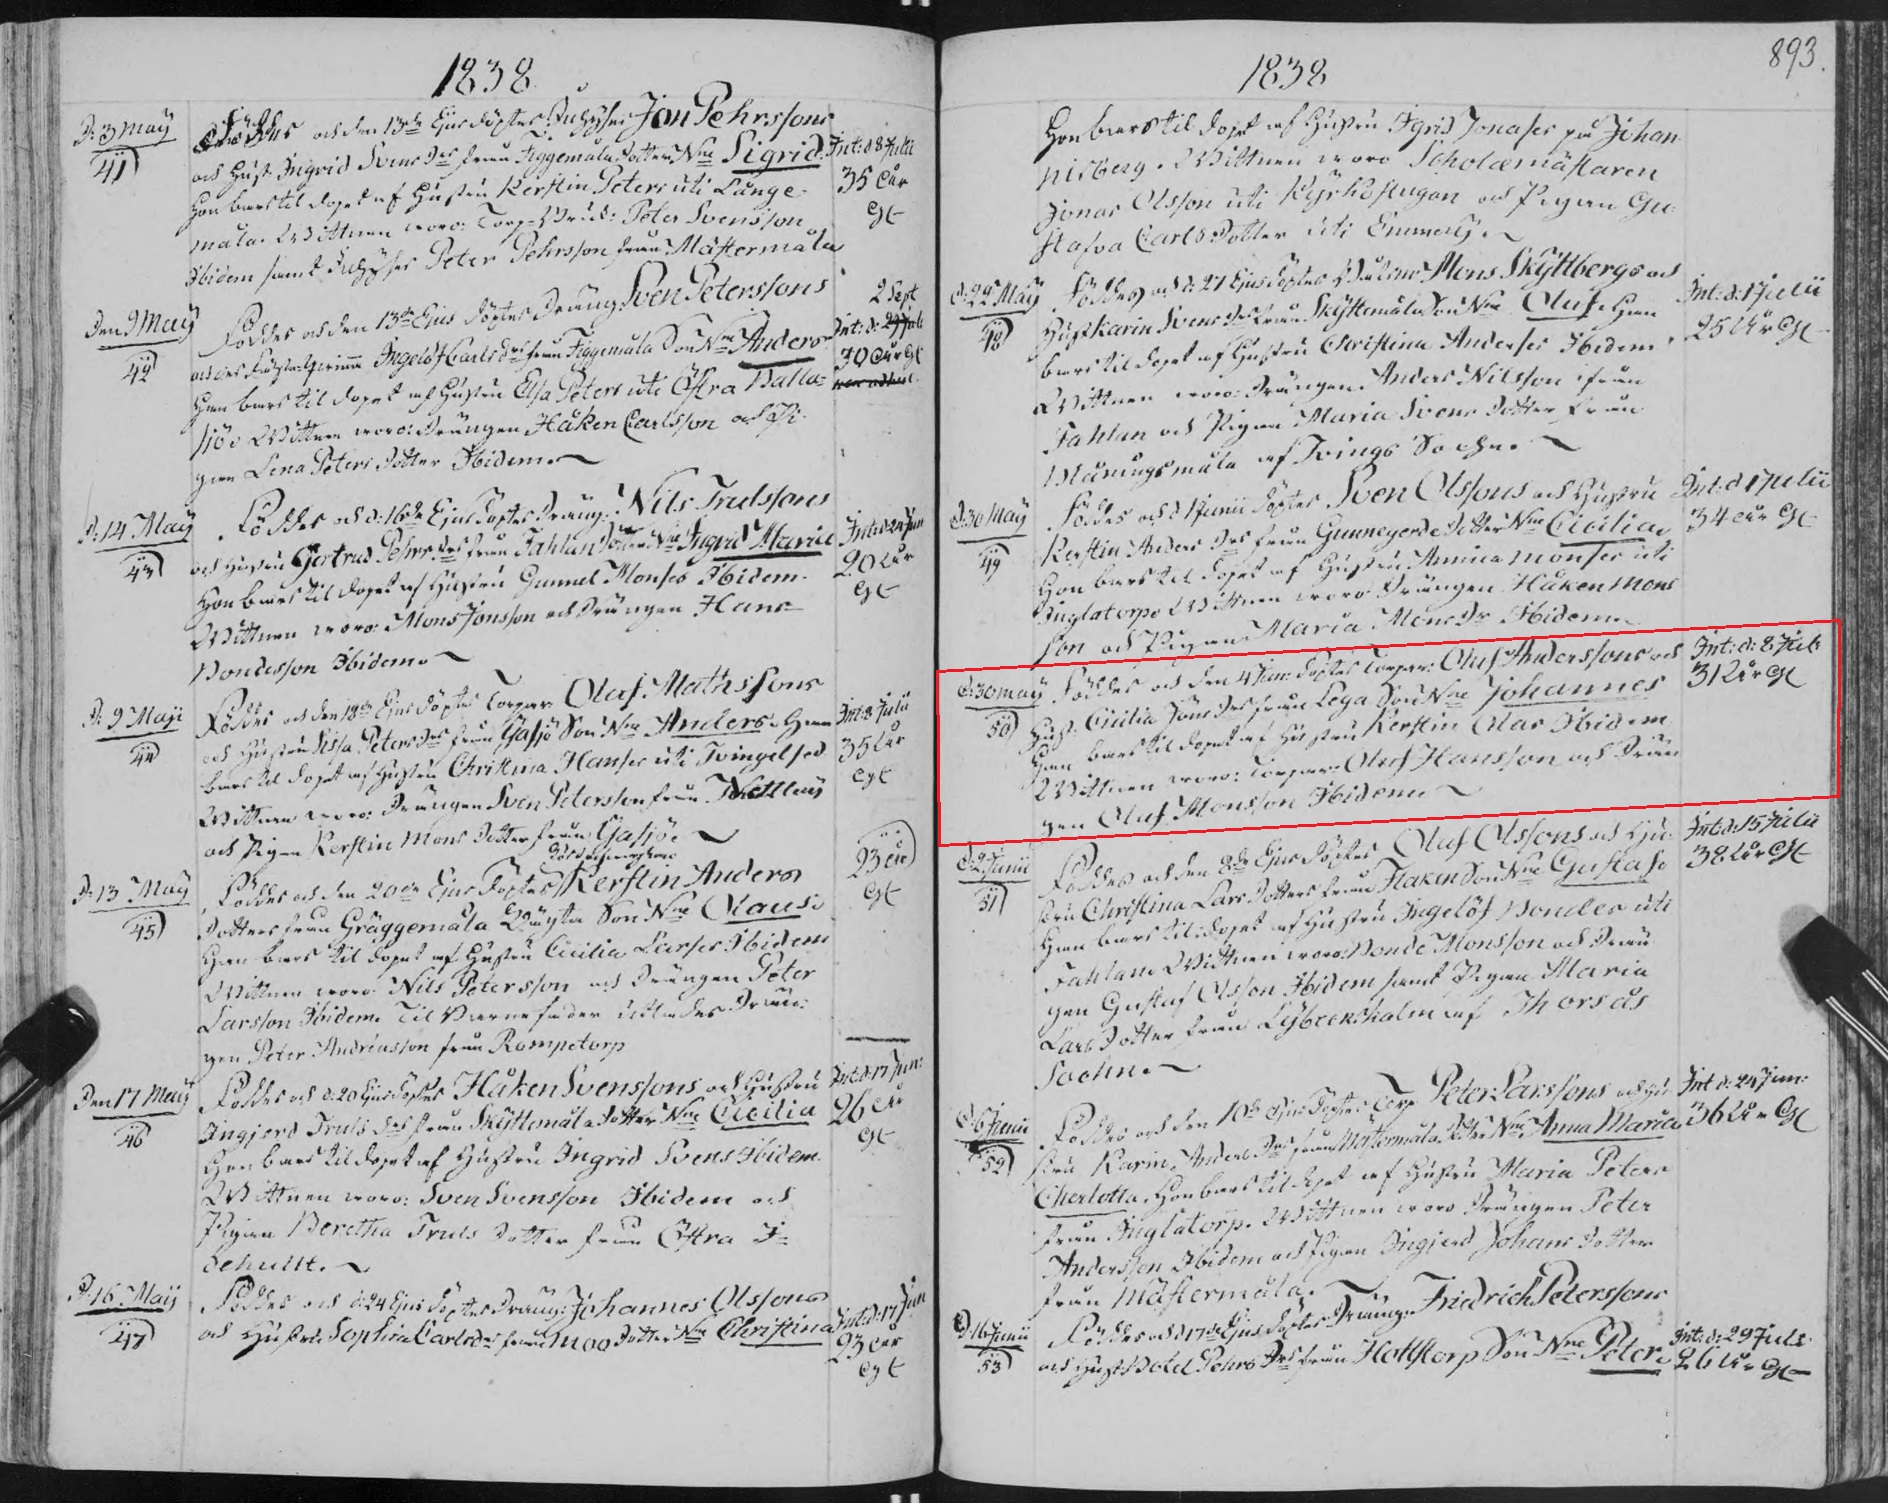 1838
D: 3 May
41
Föddes och den 13de Ejus döptes Inhyses Jon Pehrssons
och Hust. Ingrid Svens Drs från Figgemåla Dotter Nne Sigrid.
Hon bars til dopet af Hustru Kerstin Peters uti Långe-
måla. Wittnen woro: Peter Svensson
Ibidem samt Inhyses Peter Pehrsson från Mästermåla
Int: d: 8 Julii
35 åur
gt
Den 9 May
42
Föddes och den 13de Ejus döptes Dräng: Sven Peterssons
och Ingelöf Carls drs från Figgemåla Son Nne Anders
Han bars til dopet af Hustru Elsa Peters uti Östra Halla-
sjö. Wittnen woro: Drängen Håken Carlsson och Pi-
gan Lena Peters Dotter Ibidem.
2 Sept
Int: d: 29 Juli
30 åur gt
D: 14 May
43
Föddes och d: 16de Ejus döptes Dräng: Nils Trulssons
och Hustru Gertrud Pehrs Drs från Fahlan Dotter Nne Ingrid Maria
Hon bars til dopet af Hustru Gunnel Monses Ibidem.
Wittnen woro: Mons Jonsson och Drängen Hans
Bondesson Ibidem.
Int: d: 24 Jun
20 åur
gt
D: 9 Maji
44
Föddes och den 18de Ejus döptes Torpar: Olof Mathssons
och Hustru Sissa Peters Drs från Gäsjö Son Nne Anders. Han
bars til dopet af Hustru Christina Hanses uti Tvingelsed
Wittnen woro: Drängen Sven Petersson från
och Pigan Kerstin Mons Dotter från Gäsjö.
Int: 8 Julii
35 åur
gt
D: 13 May
45
Föddes och den 20de Ejus döptes Kerstin Anders
Dotters från Gräggemåla Oägta Son Nne Olaus.
Han bars til dopet af Hustru Cicilia Larses Ibidem
Wittnen woro: Nils Petersson och Drängen Peter
Larsson Ibidem. Til Barnefader utlades Drän-
gen Peter Andreasson från Rompetorp
23 åur
gt
Den 17 May
46
Föddes och d: 20 Ejus döptes Håken Svenssons och Hustru
Ingjerd Truls Drs från Skyttemåla Dotter Nne Cicilia
Hon bars til dopet af Hustru Ingrid Svens Ibidem.
Wittnen woro: Sven Svensson Ibidem och
Pigan Beretha Truls Dotter från Östra I-
behult.
Int: d: 17 Jun:
26 år
gt
D: 16 Maij
47
Föddes och d: 24 Ejus döptes Dräng: Johannes Olssons
och Hustru Sophia Carls drs från Moo Dotter Nne Christina
Int: d: 17 Jun
23 åur
gt
1838
893.
Hon bars til dopet af Hustru Sigrid Jonases på Johan-
nisberg. Wittnen woro Scholæmästaren
Jonas Olsson uti Kyrkostugan och Pigan Gu-
stafva Carls Dotter uti Emmerh.
d: 22 May
48
Föddes och d: 27 Ejus döptes Mons Skyttbergs och
Hust Karin Svens Drs från Skyttemåla Son Nne Oluf. Han
bars til dopet af Hustru Christina Anderses Ibidem.
Wittnen woro: Drängen Anders Nilsson ifrån
Fahlan och Pigan Maria Svens Dotter från
Måningsmåla af Tvings Sochn.
Int: d: 1 Julii
25 år gt
d: 30 May
49
Föddes och d: 1 Junii döptes Sven Olssons och Hustru
Kerstin Anders Drs från Gunnegerde Dotter Nne Cicilia
Hon bars til dopet af Hustru Annica Monses uti
Inglatorp. Wittnen woro Drängen Håken Mons-
son och Pigan Maria Mons Dr Ibidem.
Int: d 1 Julii
34 åur gt
d: 30 may
50
Föddes och den 4 Jun: döptes Torpar: Oluf Anderssons och
Hust: Cicilia Söns Drs från Lega Son Nne Johannes
Han bars til dopet af Hustru Kerstin Olas Ibidem
Wittnen woro: Torpar: Oluf Hansson och Drän-
gen Oluf Monsson Ibidem
Int: d: 8 Juli
31 år gt
d: 2 Junii
51
Föddes och den 8de Ejus döptes Olof Olssons och Hu-
stru Christina Lars Dotters från Flaken Son Nne Gustaf.
Han bars til dopet af Hustru Ingelöf Bondes uti
Fahlan. Wittnen woro: Bonde Monsson och Drän-
gen Gustaf Olsson Ibidem samt Pigan Maria
Lars Dotter från Lybrenskalm af Thorsås
Sochn.
Int: d: 15 Julii
38 år gt
d: 6 Junii
52
Föddes och den 10de Ejus döptes Torp Peter Larssons och Hu-
stru Karin Anders Drs från Mästermåla Dotter Nne Anna Maria
Cherlotta. Hon bars til dopet af Hustru Maria Peters
från Inglatorp. Wittnen woro Drängen Peter
Andersson Ibidem och Pigan Ingjerd Johans Dotter
från Mästermåla.
Int d: 24 Jun:
36 år gt
d: 16 Junii
53
Föddes och d 17de Ejus döptes Dräng: Friedrich Peterssons
och Hust Botel Pehrs Drs från Hottstorp Son Nne Peter.
Int: d: 29 Juli
26 år gt